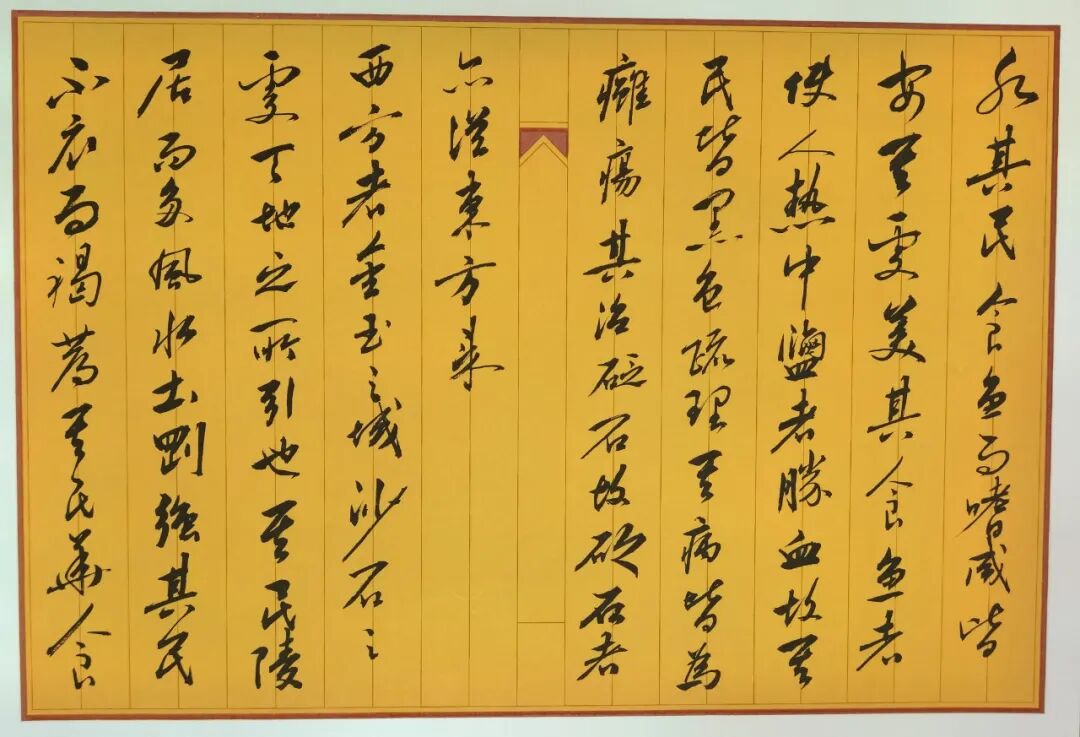 水其民食魚而嗜咸皆
安其處美其食魚者
使人热中鹽者勝血故其
民皆黑色疏理其病皆為
癰瘍其治砭石故砭石者
亦從東方来
西方者金玉之域沙石之
處天地之所引也其民陵
居而多風水土剛強其民
不衣而褐薦其民華食